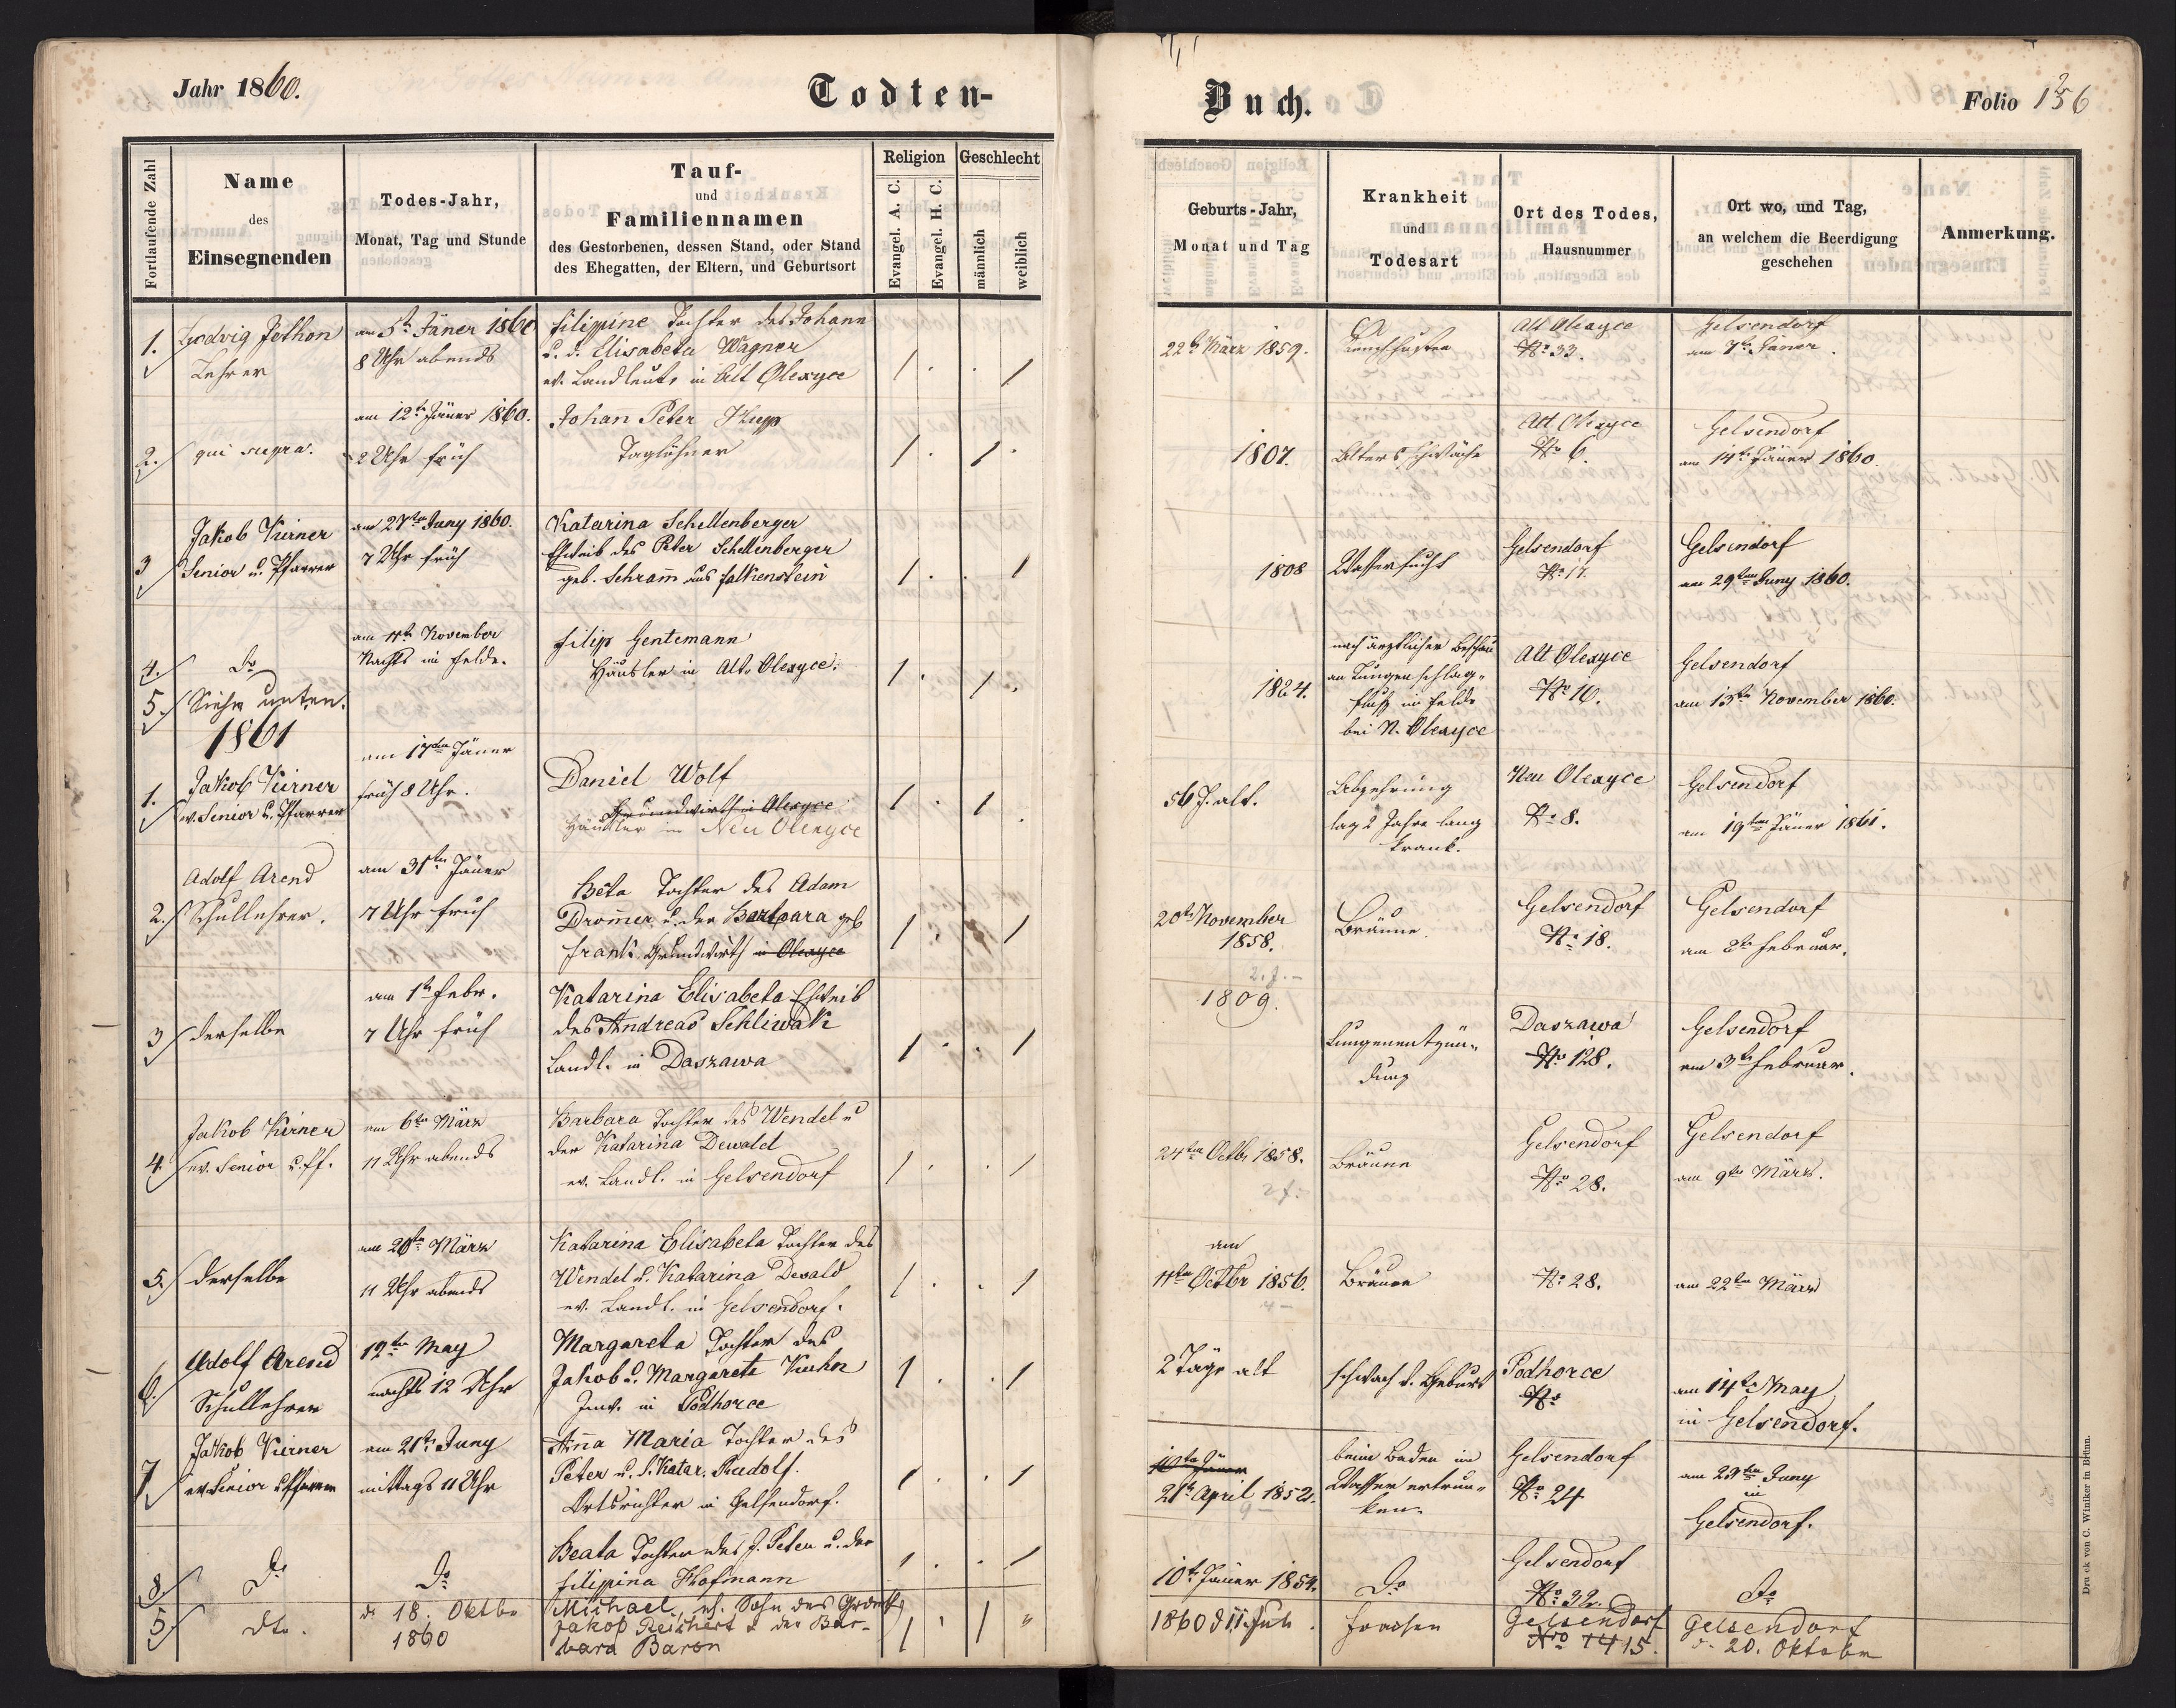 Jahr 1860.
Todten-
Buch.
Folio 156
Fortlaufende Zahl
Name
des
Einsegnenden
Todes-Jahr,
Monat, Tag und Stunde
Tauf-
und
Familiennamen
des Gestorbenen, dessen Stand, oder Stand
des Ehegatten, der Eltern, und Geburtsort
Religion
Evangel. A. C.
Evangel. H. C.
Geschlecht
männlich
weiblich
Geburts-Jahr,
Monat und Tag
Krankheit
und
Todesart
Ort des Todes,
Hausnummer
Ort wo, und Tag,
an welchem die Beerdigung
geschehen
Anmerkung.
1.
Ludvig Jethon
Lehrer
am 5t Jäner 1860
8 Uhr abends
Filipine Tochter des Johann
u. d. Elisabeta Wagner
ev. Landleute in Alt Olexyce
/ . . /
22t März 1859.
Keuchhusten
Alt Olexyce
No 33.
Gelsendorf
am 7t Jäner.
2.
qui supra.
am 12t Jäner 1860.
2 Uhr früh
Johan Peter Kupp
Taglöhner
/ . / .
1807.
Altersschwäche
Alt Olexyce
No 6.
Gelsendorf
am 14t Jäner 1860.
3
Jakob Kirner
Senior u. Pfarrer
am 27ten Juny 1860.
7 Uhr früh
Katarina Schellenberger
Eheweib des Peter Schellenberger
geb. Schram̅ aus Falkenstein
/ . . /
1808
Wassersucht
Gelsendorf
No 17.
Gelsendorf
am 29ten Juny 1860.
4.
Do
am 11t November
Nachts im Felde.
Filipp Gentemann
Häusler in Alt Olexyce.
/ . / .
1824.
nach ärztlicher Beschau
an Lungenschlag-
fluß im Felde
bei N. Olexyce
Alt Olexyce
No 10.
Gelsendorf
am 13ten November 1860.
5.
Siehe unten.
1861
1.
Jakob Kirner
ev. Senior u. Pfarrer
am 17ten Jäner
früh 8 Uhr.
Daniel Wolf
Grundwirth in Olexyce
Häusler in Neu Olexyce
/ . / .
56 J. alt.
Abzehrung
lag 2 Jahre lang
krank.
Neu Olexyce
No 8.
Gelsendorf
am 19ten Jäner 1861.
2.
Adolf Arend
Schullehrer.
am 31ten Jäner
7 Uhr früh
Beta Tochter des Adam
Drom̅er u. der Barbara geb
Frank. Grundwirth in Olexyce
/ . /
20t November
1858.
2. J. –
Bräune.
Gelsendorf
No 18.
Gelsendorf
am 2t Februar.
3
derselbe
am 1t Febr.
7 Uhr früh
Katarina Elisabeta Eheweib
des Andreas Schliwak
Landl. in Daszawa
/ . . /
1809.
Lungenentzün-
dung
Daszawa
No 128.
Gelsendorf
am 3t Februar.
4.
Jakob Kirner
ev. Senior u. Pf.
am 6ten März
11 Uhr abends
Barbara Tochter des Wendel u
der Katarina Dewald
ev. Landl. in Gelsendorf
/ . . /
24ten Octbr 1858.
2 J.
Bräune
Gelsendorf
No 28.
Gelsendorf
am 9ten März.
5.
derselbe
am 20ten März
11 Uhr abends
Katarina Elisabeta Tochter des
Wendel u. Katarina Dewald
ev. Landl. in Gelsendorf.
/ . . /
am
11ten Octbr 1856.
4 –
Bräune
No 28.
am 22ten März
6.
Adolf Arend
Schullehrer
12ten May
nachts 12 Uhr
Margareta Tochter des
Jakob u. Margareta Kuhn
Inw. in Podhorce
/ . . /
2 Täge alt
schwach v. Geburt
Podhorce
No
am 14ten May
in Gelsendorf.
7
Jakob Kirner
ev. Senior u Pfarrer
am 21t Juny
mittags 11 Uhr
An̅a Maria Tochter des
Peter u. d. Katar. Rudolf.
Ortsrichter in Gelsendorf.
/ . . /
10ten Jäner
21t April 1852.
9 –
beim Baden im
Wasser ertrun-
ken.
Gelsendorf
No 24
am 23ten Juny
in
Gelsendorf.
8.
Do
Do
Beata Tochter des J. Peter u. der
Filippina Hofmann
/ . . /
10t Jäner 1854.
Do
Gelsendorf
No 32.
Do
5.
Dto.
d. 18. Oktbr
1860
Michael, eh. Sohn des Grdwth
Jakob Reichert & der Bar-
bara Baron
/ . / "
1860 d 11. Juli.
Fraisen
Gelsendorf
Nro 14 15.
Gelsendorf
d. 20. Oktober
Druck von C. Winiker in Brünn.